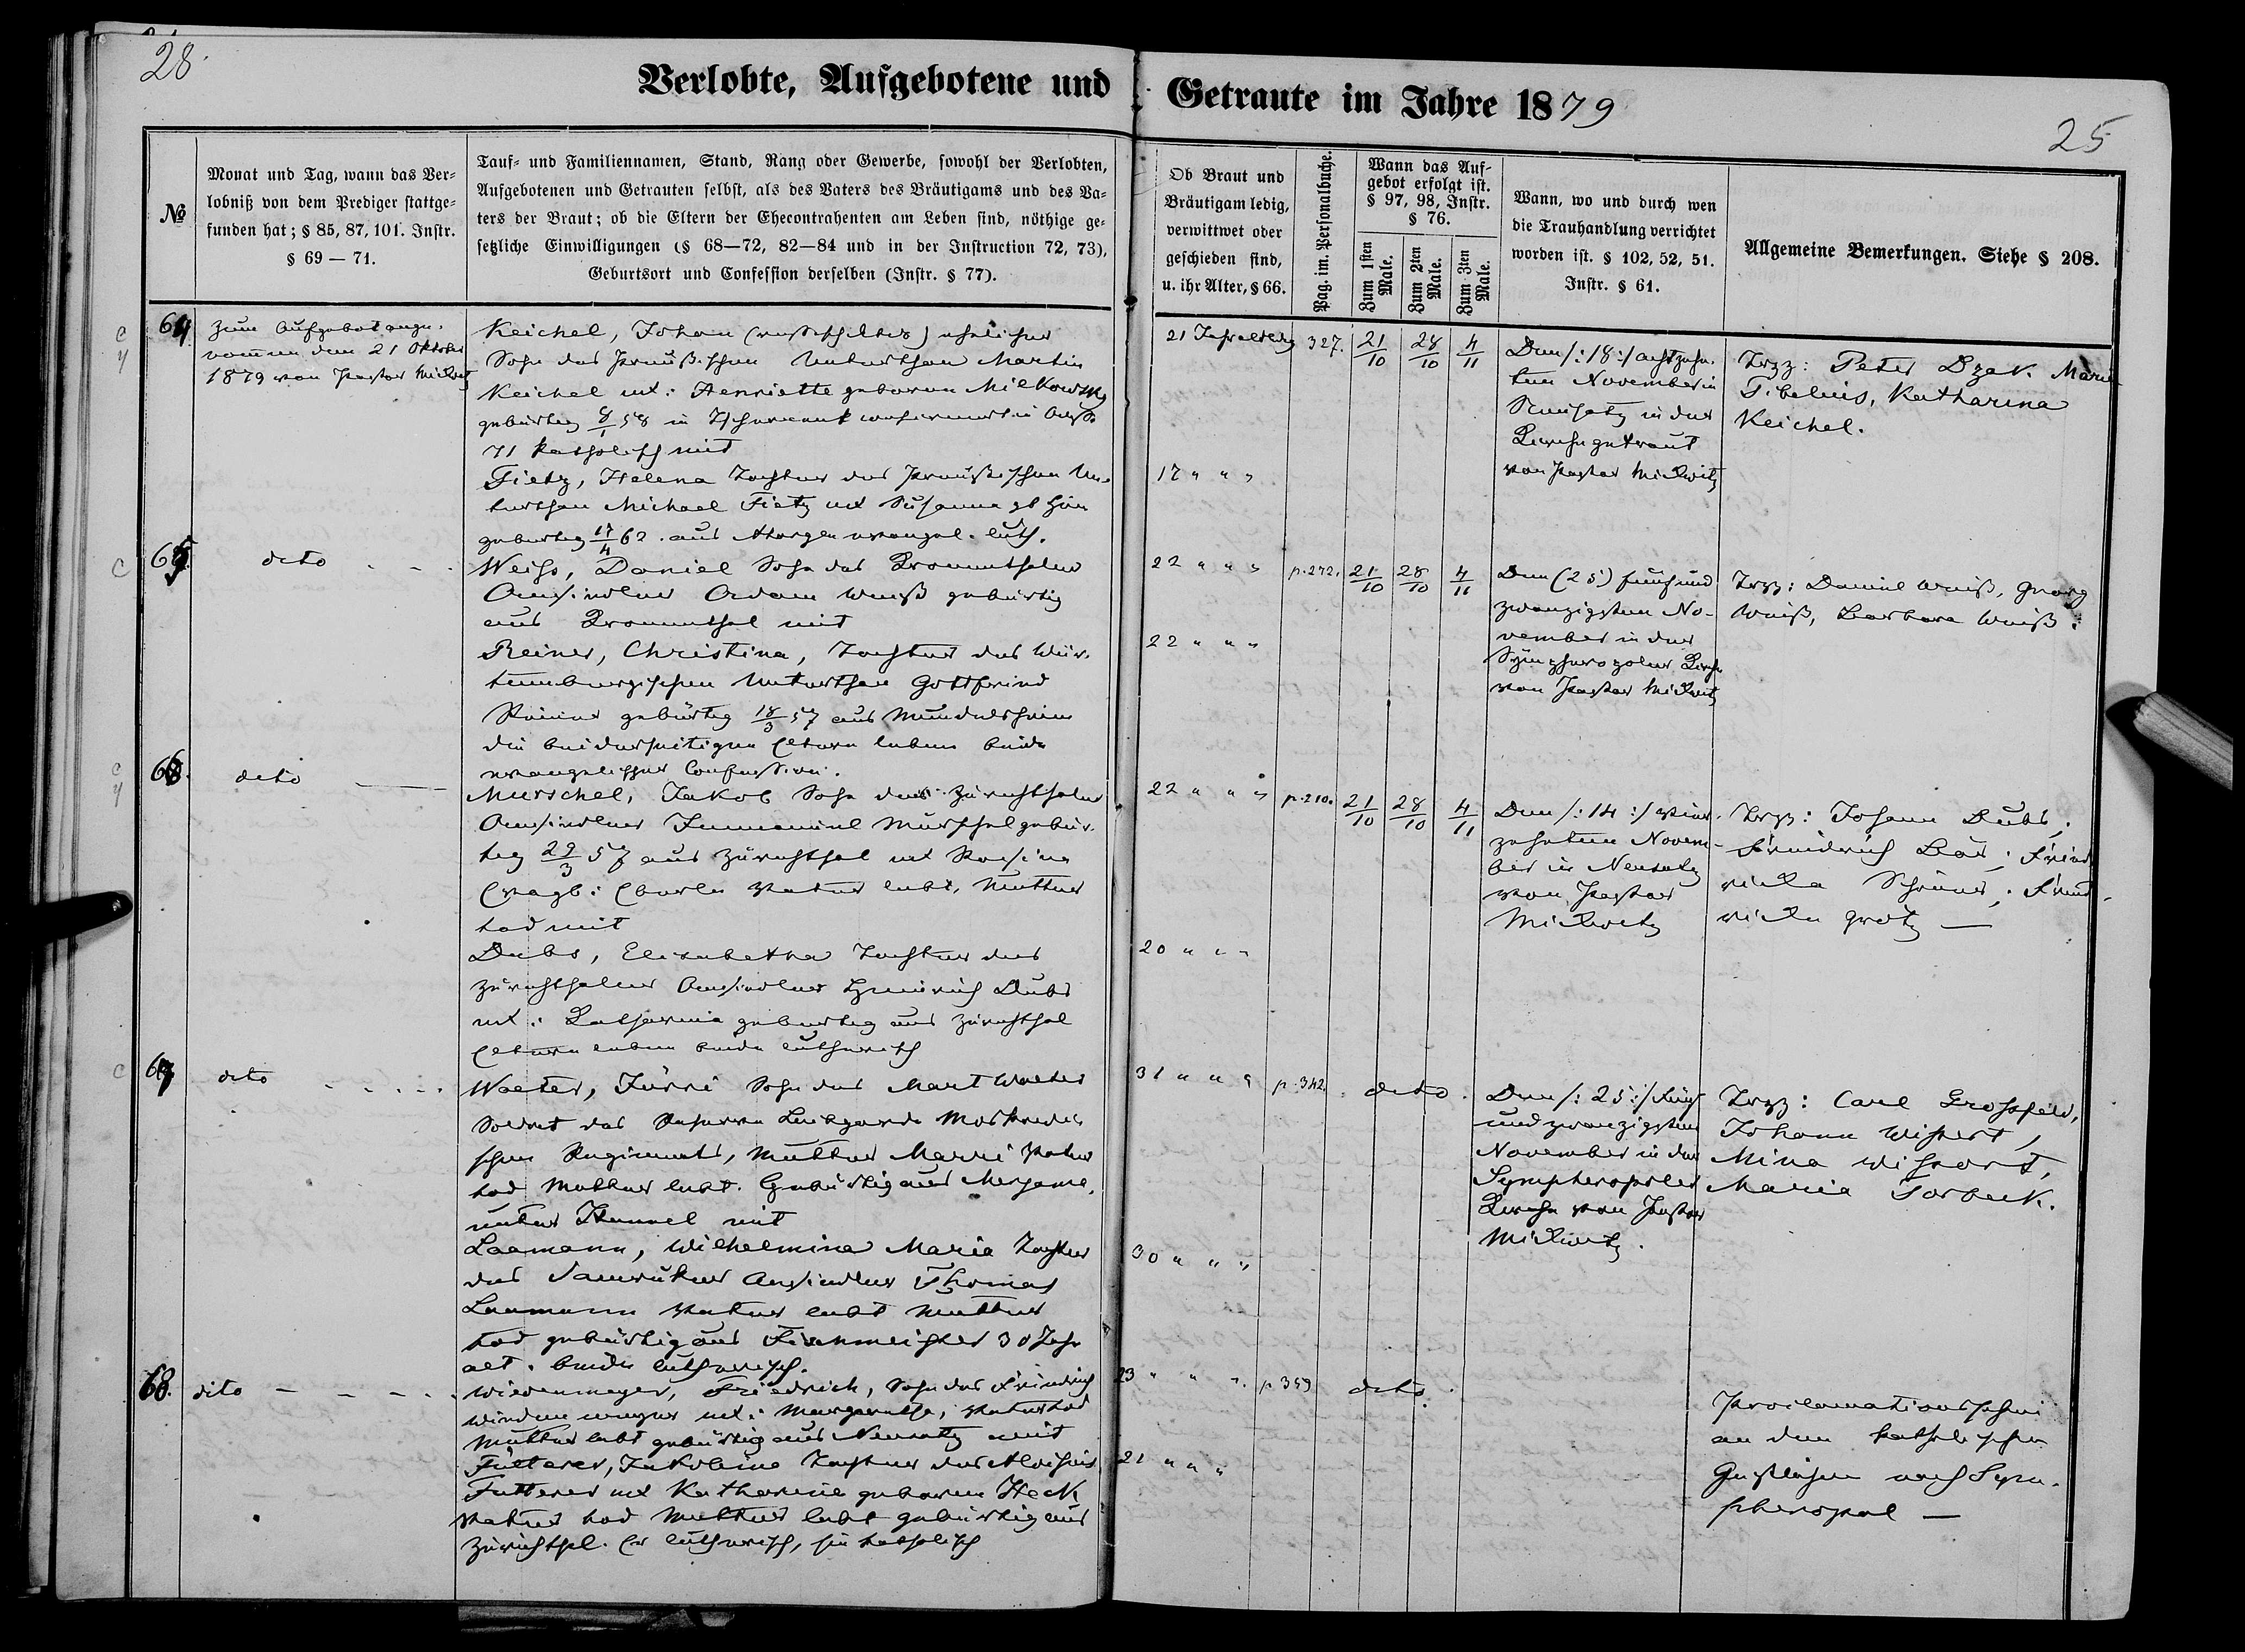 28.
Verlobte, Aufgebotene und
Getraute im Jahre 1879
25
№
Monat und Tag, wann das Ver-
lobniß von dem Prediger stattge-
funden hat; § 85, 87, 101. Instr.
§ 69 — 71.
Tauf- und Familiennamen, Stand, Rang oder Gewerbe, sowohl der Verlobten,
Aufgebotenen und Getrauten selbst, als des Vaters des Bräutigams und des Va-
ters der Braut; ob die Eltern der Ehecontrahenten am Leben sind, nöthige ge-
setzliche Einwilligungen (§ 68—72, 82—84 und in der Instruction 72, 73),
Geburtsort und Confession derselben (Instr. § 77).
Ob Braut und
Bräutigam ledig,
verwittwet oder
geschieden sind,
u. ihr Alter, § 66.
Pag. im. Personalbuche.
Wann das Auf-
gebot erfolgt ist.
§ 97, 98, Instr.
§ 76.
Zum 1sten
Male.
Zum 2ten
Male.
Zum 3ten
Male.
Wann, wo und durch wen
die Trauhandlung verrichtet
worden ist. § 102, 52, 51.
Instr. § 61.
Allgemeine Bemerkungen. Siehe § 208.
64
Zum Aufgebot ange-
nommen den 21 Oktober
1879 von Pastor Mickwitz
Keichel, Johann ehelicher
Sohn des Preußischen Unterthan Martin
Keichel ux: Henriette geborene Milkowsky
gebürtig 8/1 58 in confirmirt in
71 katholisch mit
Fietz, Helena Tochter des Preußischen Un-
terthan Michael Fietz ux Susanna gb
gebürtig 17/4 62. aus evangel. luth.
21 Jahr ledig
17 " " "
327.
21/10
28/10
4/11
Den /:18:/ achtzehn-
ten November in
Neusatz in der
Kirche getraut
von Pastor Mickwitz
Trzz: Peter Dzak. Marie
Sibelius, Katharina
Keichel.
65.
deto - - -
Weiss, Daniel Sohn des Kronenthaler
Ansiedler Adam Weiß gebürtig
aus Kronenthal mit
Reiner, Christina, Tochter des Wür-
tembergischen Unterthan Gottfried
Reiner gebürtig 18/3 57 aus Mundelsheim
die beiderseitigen Eltern leben beide
evangelischer Confession.
22 " " "
22 " " "
p. 272.
21/10
28/10
4/11
Den (25) fünfund
zwanzigsten No-
vember in der
Sympheropoler Kirche
von Pastor Mickwitz
Trzz: Daniel Weiß, Georg
Weiß, Barbara Weiß.
66.
deto
Murschel, Jakob Sohn des Zürichthaler
Ansiedlers Immanuel Murschel gebür-
tig 29/3 57 aus Zürichthal ux Rosina
Eberle Vater lebt, Mutter
tod mit
Dubs, Elisabetha Tochter des
Zürichthaler Ansiedler Heinrich Dubs
ux: Katharina gebürtig aus Zürichthal
Eltern leben beide lutherisch
22 " " "
20 " " "
p. 210.
21/10
28/10
4/11
Den /:14:/ vier-
zehnten Novem-
ber in Neusatz
von Pastor
Mickwitz
Trzz: Johann Dubs,
Friedrich Bär; Fried-
ricka Schöner; Fried-
ricka Grotz —
67
deto - - - -
Walter, Jürri Sohn des Mart Walter
Soldat des Reserve Leibgarde
schen Regiments, Mutter Marri Vater
tod Mutter lebt. Gebürtig aus Merjama,
mit
Laamann, Wilhelmina Maria Tochter
des Ansiedler Thomas
Laamann Vater lebt Mutter
tod gebürtig aus 30 Jahr
alt. beide lutherisch.
31 " " "
30 " " "
p. 342.
deto.
Den /:25:/ fünf
und zwanzigsten
November in der
Sympheropoler
Kirche von Pastor
Mickwitz.
Trzz: Carl Grossfeld,
Johann Wissert,
Mina Wissert,
Maria Torbeck.
68.
dito - - - -
Wiedenmeyer, Friedrich, Sohn des Friedrich
Wiedenmeyer ux: Margaretha, Vater tod
Mutter lebt gebürtig aus Neusatz mit
Futterer, Jakobina Tochter des Aloisius
Futterer ux Katharina geborene Heck
Vater tod Mutter lebt gebürtig aus
Zürichthal. Er lutherisch, sie katholisch
23 " " "
21 " " "
p 359
deto.
Proclamationsschein
an den katholischen
Geistlichen nach Sym-
pheropol —